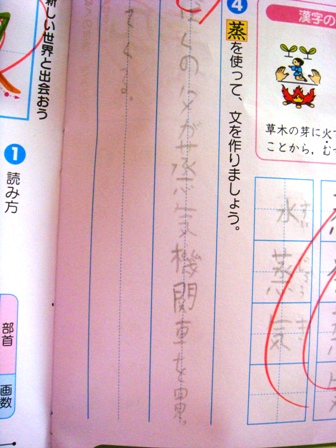 漢字の
草木の芽に火
ことから、む
水蒸気
4 蒸を使って、文を作りましょう。
くの父が蒸気機関車を
新しい世界と出会おう
1 読み方
部首
画数